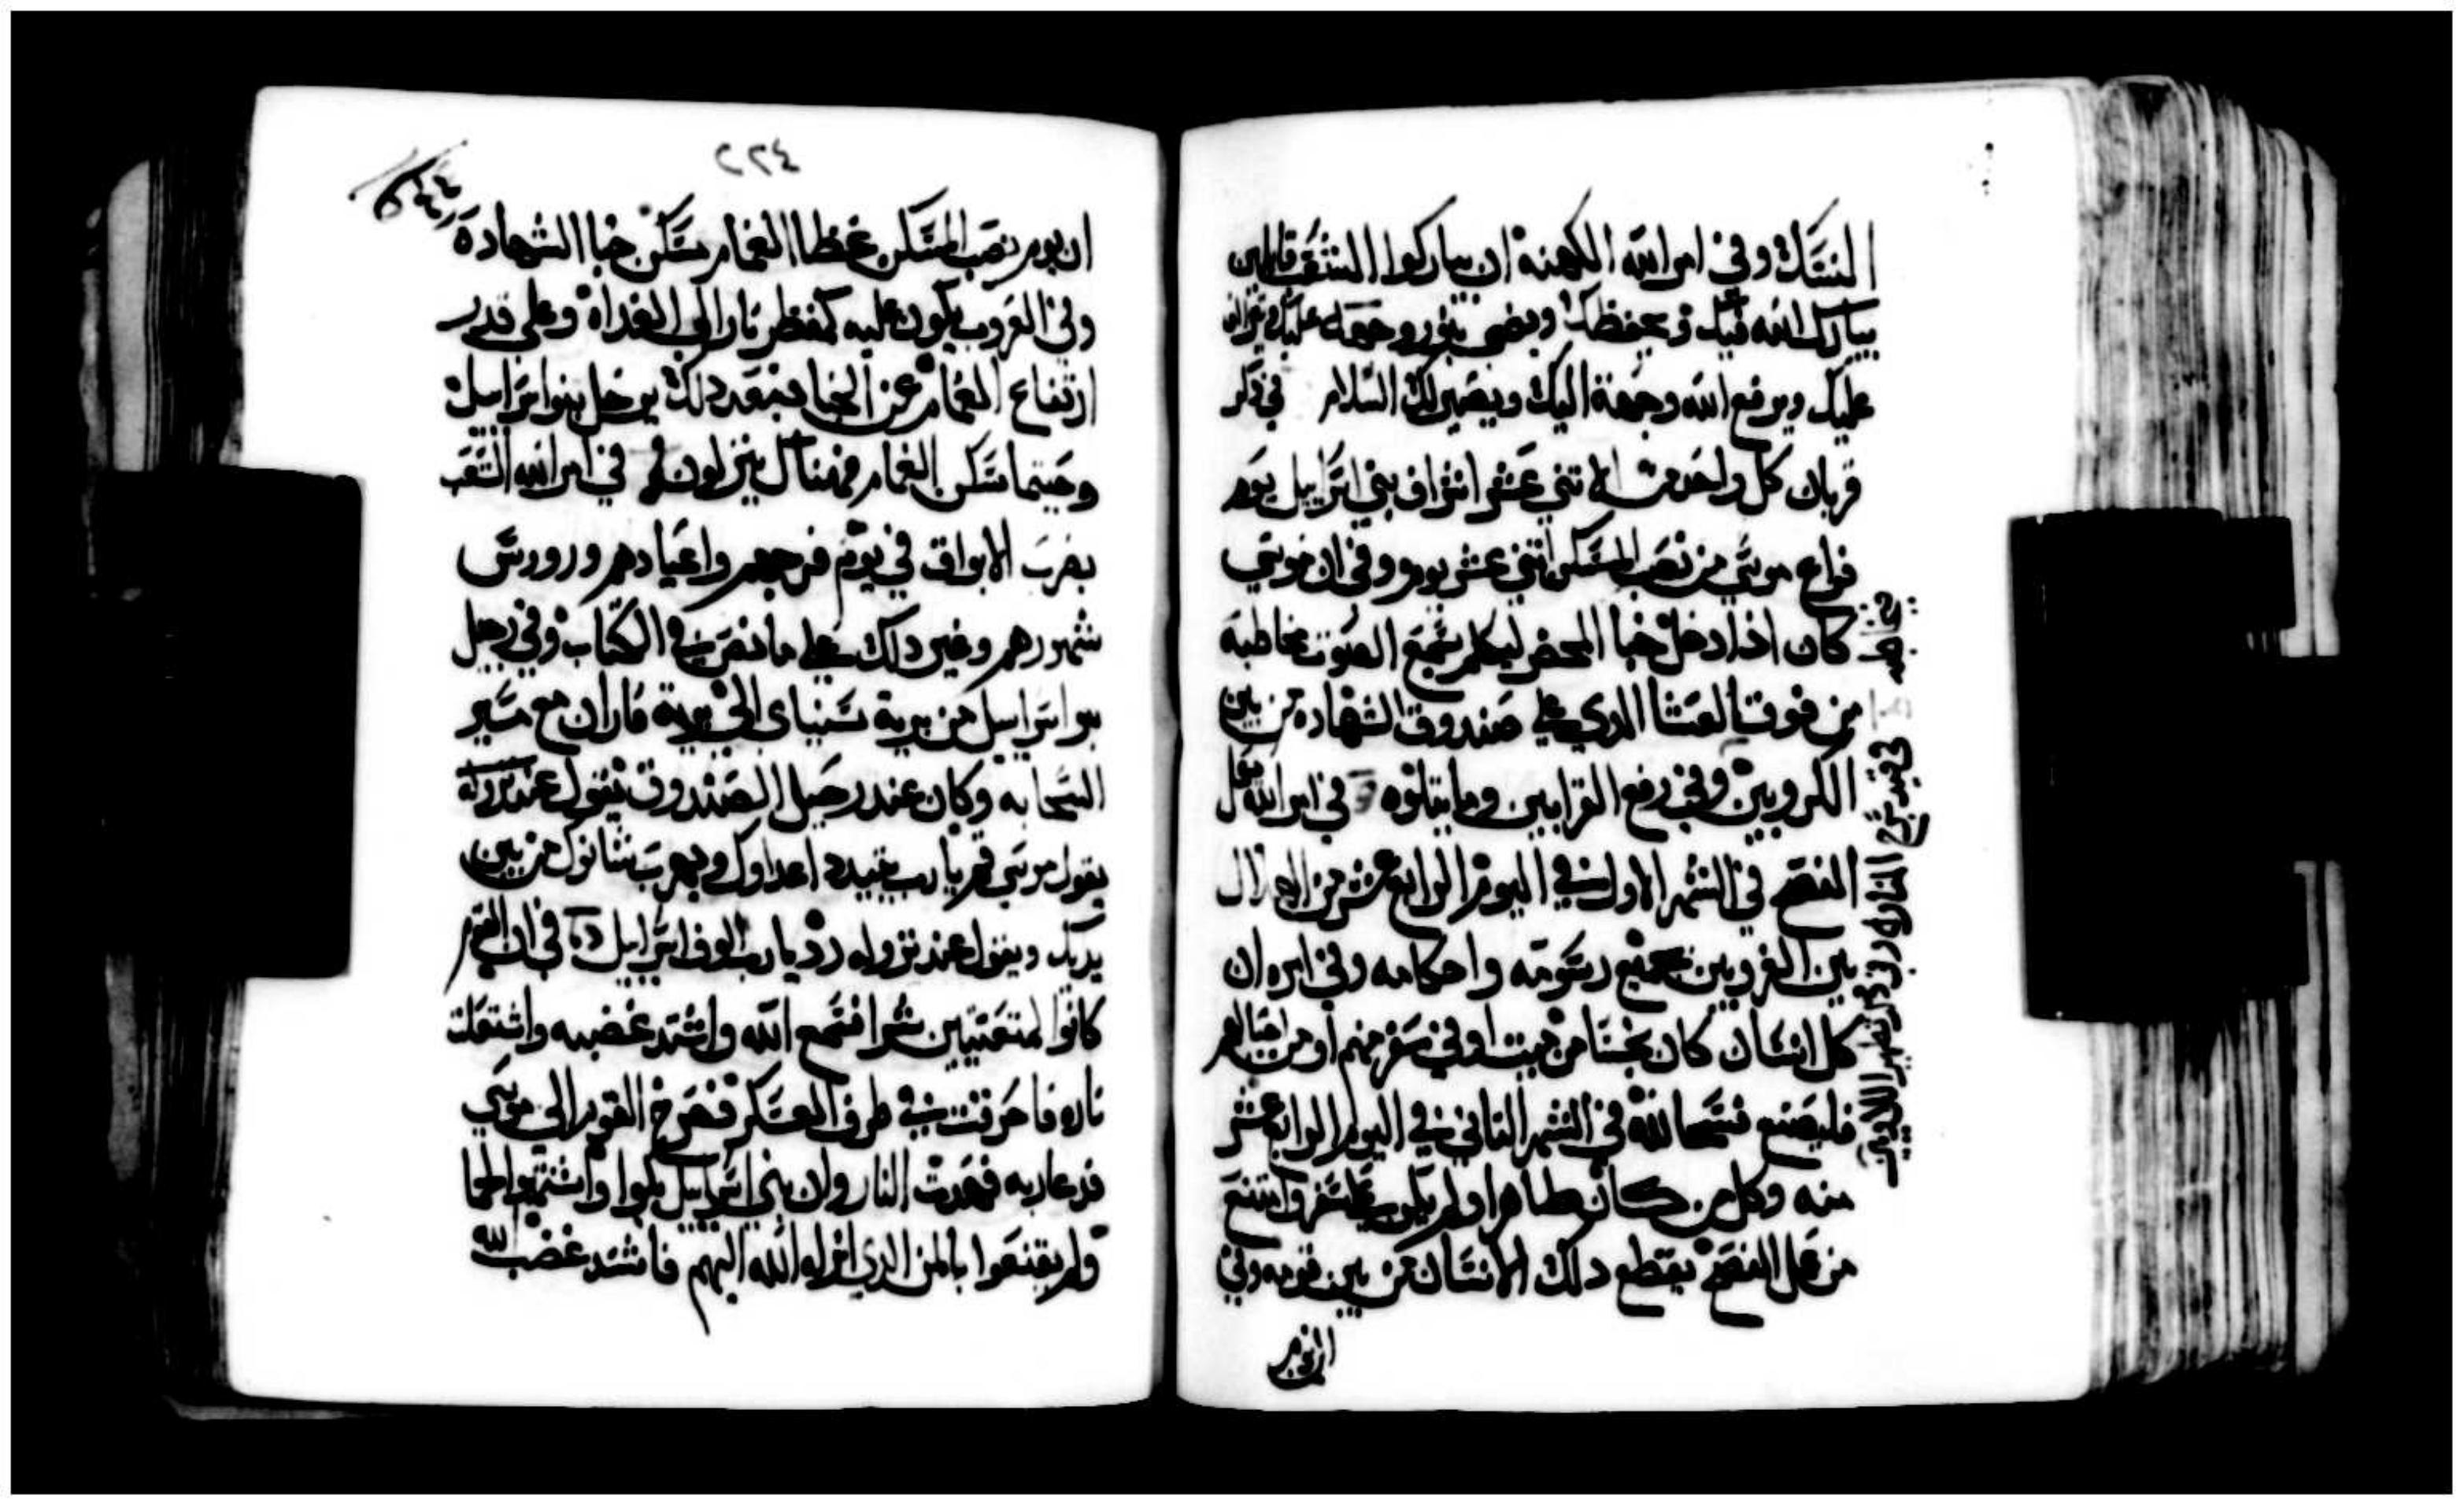 النسك وفي امر الله الكهنه ان يباركوا الشعب قايلين
يبارك الله فيك ويحفظك ويضي بنور وجهه عليك
عليك ويرفع الله وجهه اليك ويصير لك السلام في ذكر
قربان كل واحد من الاتني عشر اشراف بني اسرايل يوم
فراغ موسي من نصب المسكن اتني عشر يوم وفي ان موسي
كان اذا دخل خبا المحضر ليكلم يسمع الصوت مخاطبة
من فوق الغشا الدي علي صندوق الشهاده من بين
الكروبين وفي رفع القرابين وما يتلوه في امر الله بعمل
الفصح في الشهر الاول في اليوم الرابع عشر من الهلال
بين الغروبين بجميع رسومه واحكامه وفي امره ان
كل انسان كان نجسا من ميت او في سفر منهم او من اجيالهم
فليصنع فسحا لله في الشهر التاني في اليوم الرابع عشر
منه وكل من كان طاهرا ولم يكن علي سفر وامتنع
من عمل الفصح يقطع دلك الانسان من بين قومه وفي
في سرج المناره وفي ذكر تطهير اللاويين
٢٢٤
ان يوم نصب المسكن غطا الغمام مسكن خبا الشهادة
وفي الغروب يكون عليه كمنظر نار الي الغداة وعلي قدر
ارتفاع الغمام عن الخبا فبعد دلك يرحل بنوا سراييل
وحيتما سكن الغمام فهناك ينزلون في امر الله الشعب
بضرب الابواق في يوم فرحهم واعيادهم وروس
شهورهم وغير دلك علي ما نص في الكتاب وفي رحيل
بنو اسراييل من برية سيناي الي برية فاران مع مسير
السحابه وكان عند رحيل الصندوق يقول عند
يقول موسي قم يا رب يتبدد اعداوك ويهرب شانوك من بين
يديك ويقول عند نزوله رد يا رب الوف اسراييل في ان القوم
كانوا متعنتين شرا فسمع الله واشتد غضبه واشتعلت
ناره فاحرقت في طرف العسكر فصرخ القوم الي موسي
فدعا ربه فخمدت النار وان بني اسراييل بكوا واشتهوا لحما
ولم يقنعوا بالمن الدي انزله الله اليهم فاشتد غضب الله